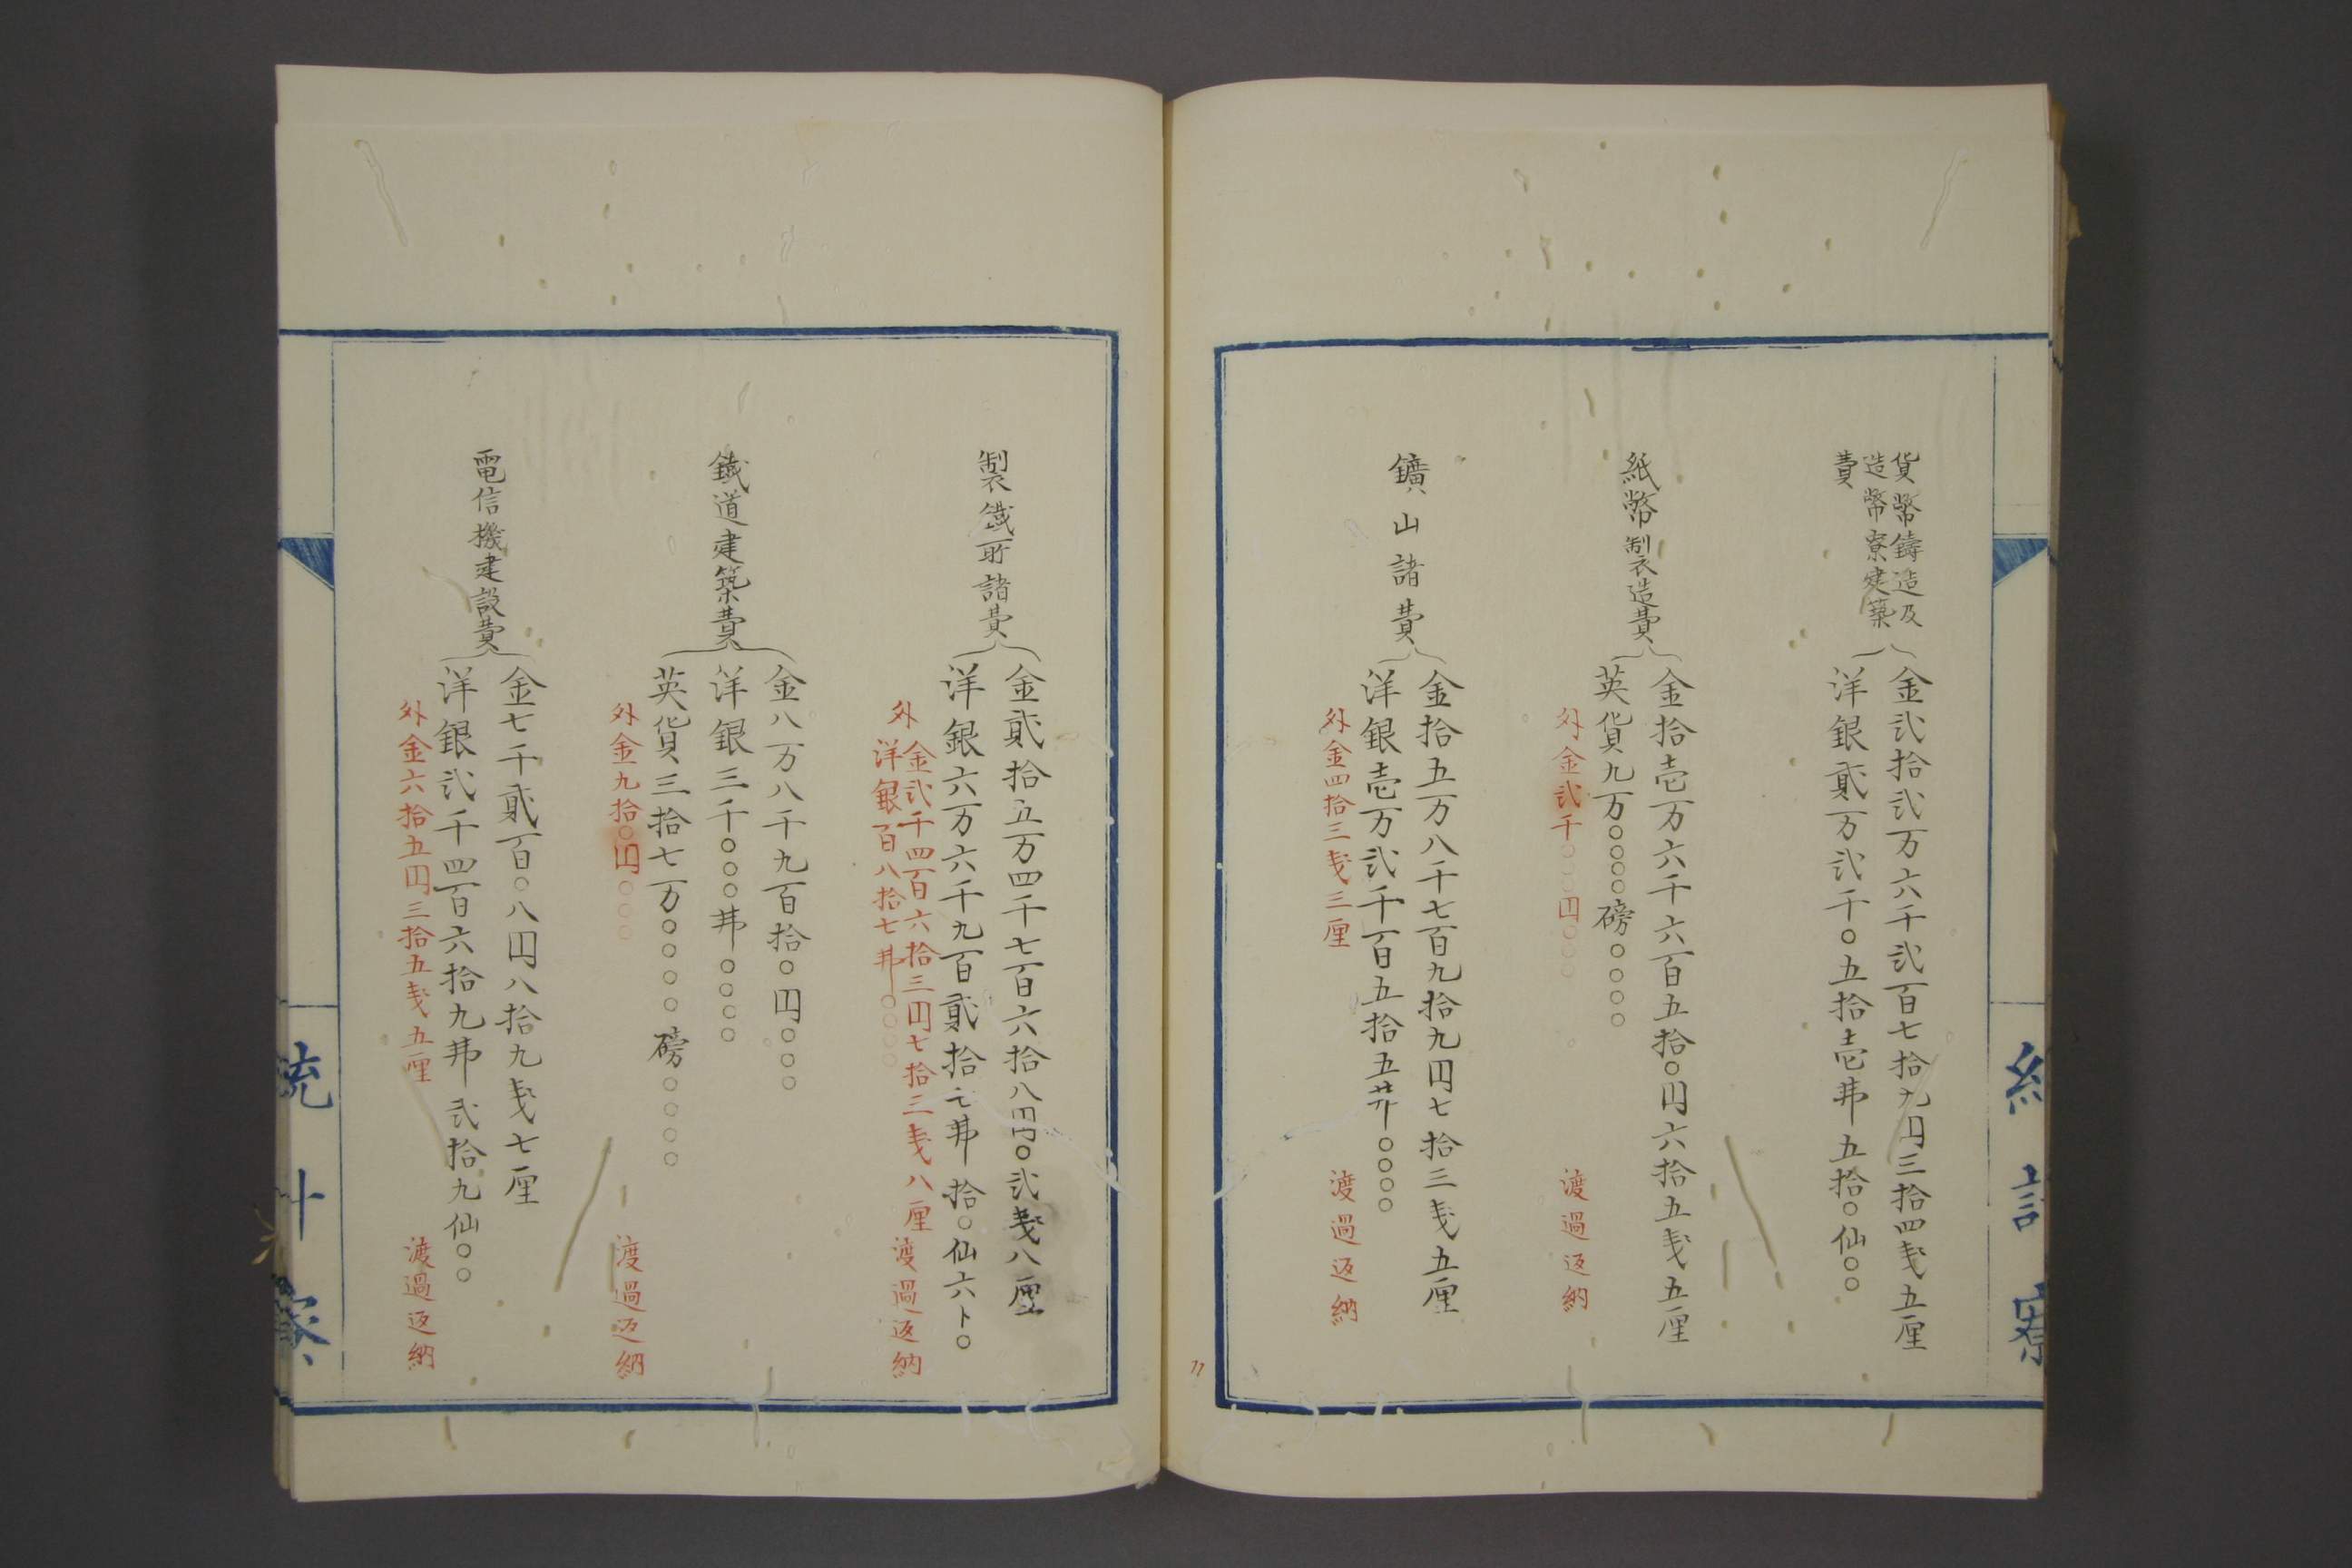 貨幣鋳造及
造幣寮建築
費
金弐拾弐万六千弐百七拾九円三拾四戔五厘
洋銀貳万弐千〇五拾壱弗五拾〇仙〇〇
紙幣製造費
金拾壱万六千六百五拾〇円六拾五戔五厘
英貨九万〇〇〇〇磅〇〇〇〇
外金弐千〇〇〇円〇〇〇
渡過返納
鑛山諸費
金拾五万八千七百九拾九円七拾三戔五厘
洋銀壱万弐千百五拾五弗〇〇〇〇
外金四拾三戔三厘
渡過返納
製鐵所諸費
金貳拾五万四千七百六拾八円〇弐戔八厘
洋銀六万六千九百貳拾七弗拾〇仙六ト〇
外
金弐千四百六拾三円七拾三戔八厘
洋銀百八拾七弗〇〇〇〇
渡過返納
鐵道建築費
金八万八千九百拾〇円〇〇〇
洋銀三千〇〇〇弗〇〇〇〇
英貨三拾七万〇〇〇〇磅〇〇〇〇
外金九拾〇円〇〇〇
渡過返納
電信機建設費
金七千貳百〇八円八拾九戔七厘
洋銀弐千四百六拾九弗弐拾九仙〇〇
外金六拾五円三拾五戔五厘
渡過返納